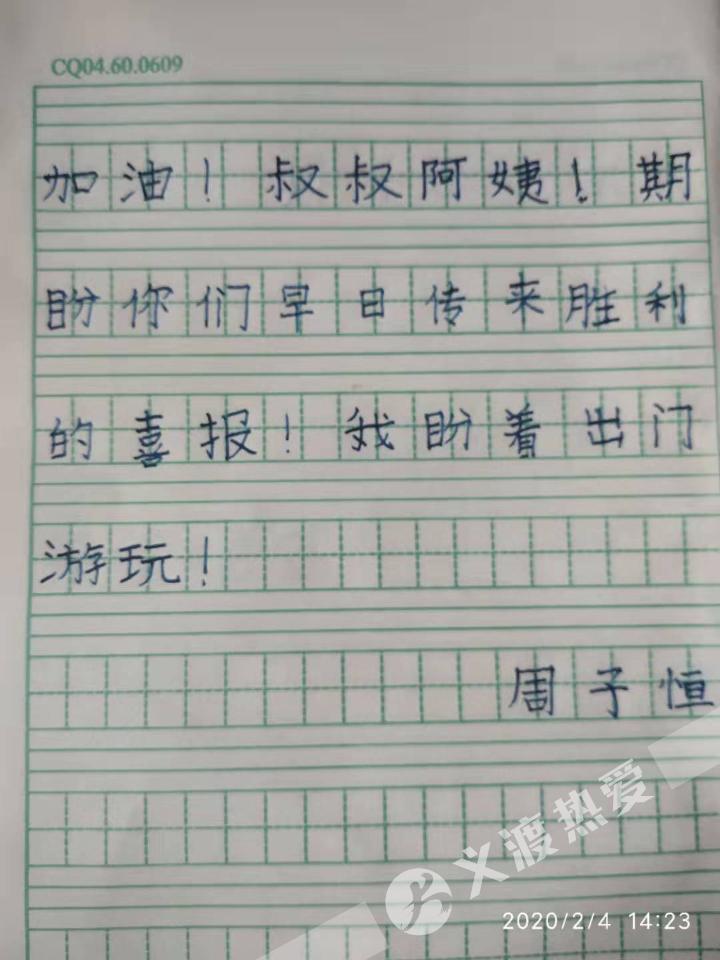 CQ04.60.0609
加油！叔叔阿姨！期
盼你们早日传来胜利
的喜报！我盼着出门
游玩！
周子恒
义渡热爱
2020/2/4 14:23